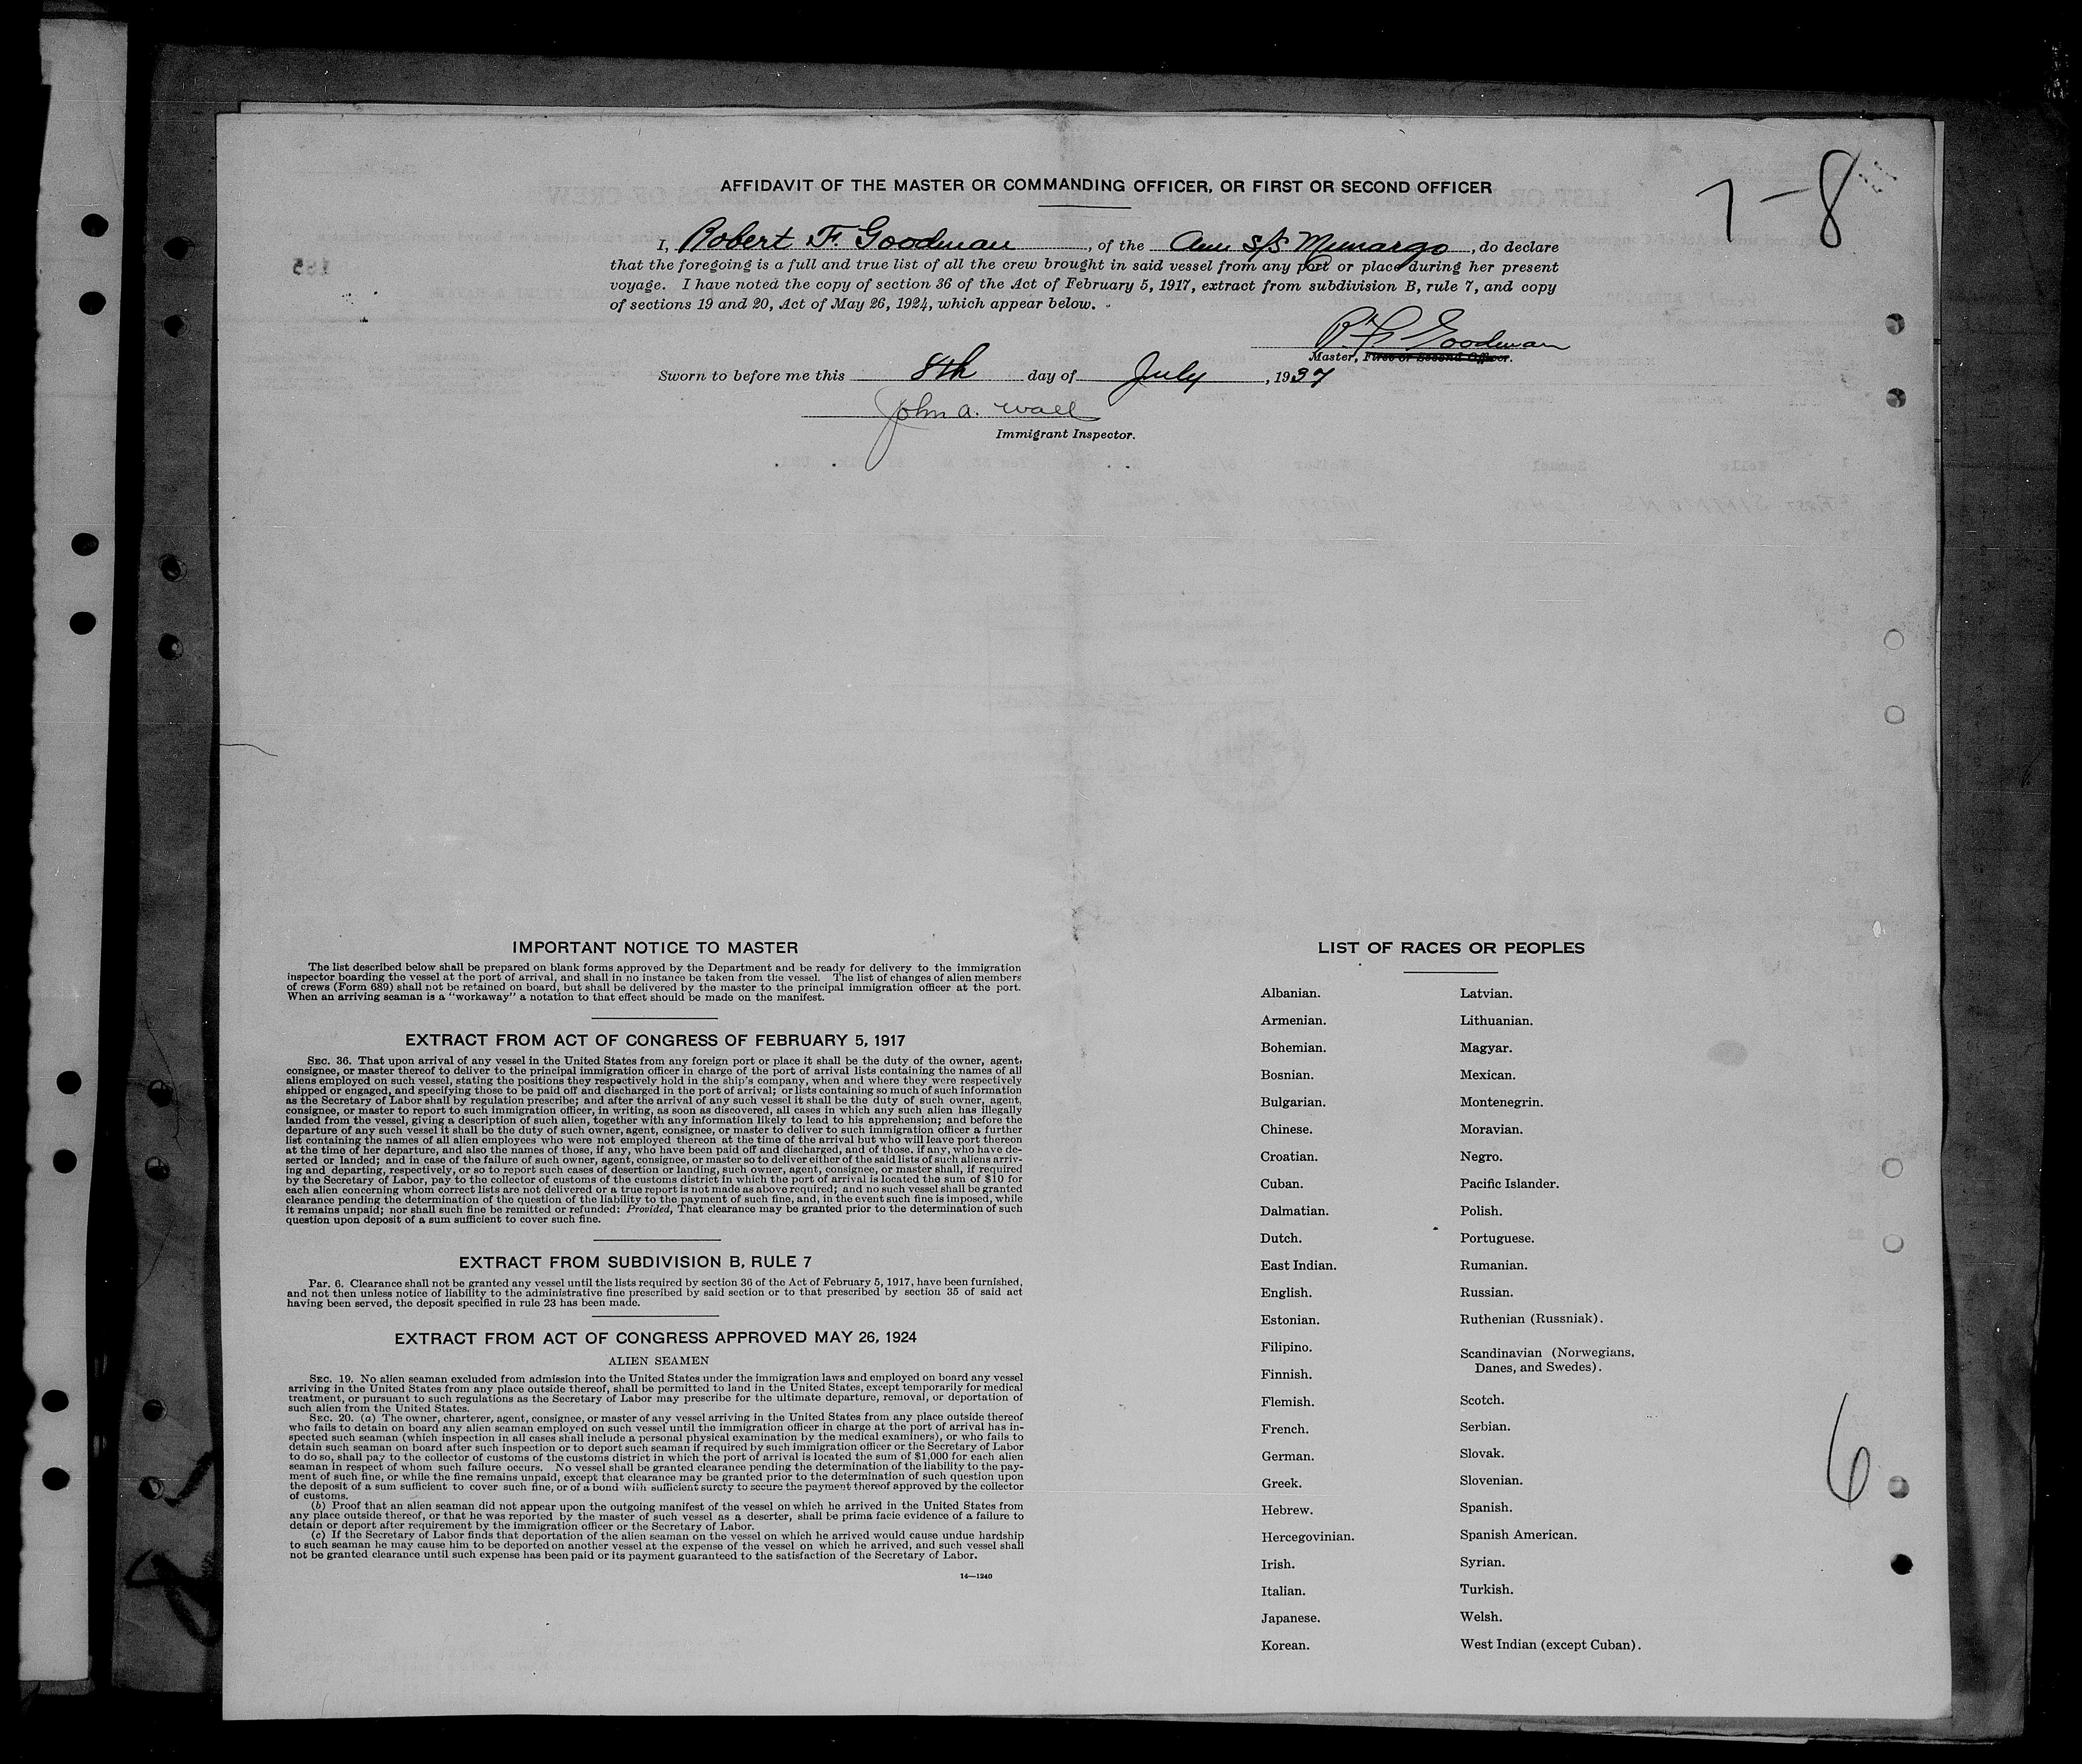 7-8
AFFIDAVIT OF THE MASTER OR COMMANDING OFFICER, OR FIRST OR SECOND OFFICER
I, Robert F. Goodman, of the Am s/s Munargo, do declare
that the foregoing is a full and true list of all the crew brought in said vessel from any port or place during her present
voyage. I have noted the copy of section 36 of the Act of February 5, 1917, extract from subdivision B, rule 7, and copy
of sections 19 and 20, Act of May 26, 1924, which appear below.
R. F. Goodman
Master, First or Second Officer.
Sworn to before me this 8th day of July, 1937
John A. Wall
Immigrant Inspector.
IMPORTANT NOTICE TO MASTER
The list described below shall be prepared on blank forms approved by the Department and be ready for delivery to the immigration
inspector boarding the vessel at the port of arrival, and shall in no instance be taken from the vessel. The list of changes of alien members
of crews (Form 689) shall not be retained on board, but shall be delivered by the master to the principal immigration officer at the port.
When an arriving seaman is a "workaway" a notation to that effect should be made on the manifest.
EXTRACT FROM ACT OF CONGRESS OF FEBRUARY 5, 1917
SEC. 36. That upon arrival of any vessel in the United States from any foreign port or place it shall be the duty of the owner, agent,
consignee, or master thereof to deliver to the principal immigration officer in charge of the port of arrival lists containing the names of all
aliens employed on such vessel, stating the positions they respectively hold in the ship's company, when and where they were respectively
shipped or engaged, and specifying those to be paid off and discharged in the port of arrival; or lists containing so much of such information
as the Secretary of Labor shall by regulation prescribe; and after the arrival of any such vessel it shall be the duty of such owner, agent,
consignee, or master to report to such immigration officer, in writing, as soon as discovered, all cases in which any such alien has illegally
landed from the vessel, giving a description of such alien, together with any information likely to lead to his apprehension; and before the
departure of any such vessel it shall be the duty of such owner, agent, consignee, or master to deliver to such immigration officer a further
list containing the names of all alien employees who were not employed thereon at the time of the arrival but who will leave port thereon
at the time of her departure, and also the names of those, if any, who have been paid off and discharged, and of those, if any, who have de-
serted or landed; and in case of the failure of such owner, agent, consignee, or master so to deliver either of the said lists of such aliens arriv-
ing and departing, respectively, or so to report such cases of desertion or landing, such owner, agent, consignee, or master shall, if required
by the Secretary of Labor, pay to the collector of customs of the customs district in which the port of arrival is located the sum of $10 for
each alien concerning whom correct lists are not delivered or a true report is not made as above required; and no such vessel shall be granted
clearance pending the determination of the question of the liability to the payment of such fine, and, in the event such fine is imposed, while
it remains unpaid; nor shall such fine be remitted or refunded: Provided, That clearance may be granted prior to the determination of such
question upon deposit of a sum sufficient to cover such fine.
EXTRACT FROM SUBDIVISION B, RULE 7
Par. 6. Clearance shall not be granted any vessel until the lists required by section 36 of the Act of February 5, 1917, have been furnished,
and not then unless notice of liability to the administrative fine prescribed by said section or to that prescribed by section 35 of said act
having been served, the deposit specified in rule 23 has been made.
EXTRACT FROM ACT OF CONGRESS APPROVED MAY 26, 1924
ALIEN SEAMEN
SEC. 19. No alien seaman excluded from admission into the United States under the immigration laws and employed on board any vessel
arriving in the United States from any place outside thereof, shall be permitted to land in the United States, except temporarily for medical
treatment, or pursuant to such regulations as the Secretary of Labor may prescribe for the ultimate departure, removal, or deportation of
such alien from the United States.
SEC. 20. (a) The owner, charterer, agent, consignee, or master of any vessel arriving in the United States from any place outside thereof
who fails to detain on board any alien seaman employed on such vessel until the immigration officer in charge at the port of arrival has in-
spected such seaman (which inspection in all cases shall include a personal physical examination by the medical examiners), or who fails to
detain such seaman on board after such inspection or to deport such seaman if required by such immigration officer or the Secretary of Labor
to do so, shall pay to the collector of customs of the customs district in which the port of arrival is located the sum of $1,000 for each alien
seaman in respect of whom such failure occurs. No vessel shall be granted clearance pending the determination of the liability to the pay-
ment of such fine, or while the fine remains unpaid, except that clearance may be granted prior to the determination of such question upon
the deposit of a sum sufficient to cover such fine, or of a bond with sufficient surety to secure the payment thereof approved by the collector
of customs.
(b) Proof that an alien seaman did not appear upon the outgoing manifest of the vessel on which he arrived in the United States from
any place outside thereof, or that he was reported by the master of such vessel as a deserter, shall be prima facie evidence of a failure to
detain or deport after requirement by the immigration officer or the Secretary of Labor.
(c) If the Secretary of Labor finds that deportation of the alien seaman on the vessel on which he arrived would cause undue hardship
to such seaman he may cause him to be deported on another vessel at the expense of the vessel on which he arrived, and such vessel shall
not be granted clearance until such expense has been paid or its payment guaranteed to the satisfaction of the Secretary of Labor.
14—1240
LIST OF RACES OR PEOPLES
Albanian.
Armenian.
Bohemian.
Bosnian.
Bulgarian.
Chinese.
Croatian.
Cuban.
Dalmatian.
Dutch.
East Indian.
English.
Estonian.
Filipino.
Finnish.
Flemish.
French.
German.
Greek.
Hebrew.
Hercegovinian.
Irish.
Italian.
Japanese.
Korean.
Latvian.
Lithuanian.
Magyar.
Mexican.
Montenegrin.
Moravian.
Negro.
Pacific Islander.
Polish.
Portuguese.
Rumanian.
Russian.
Ruthenian (Russniak).
Scandinavian (Norwegians,
Danes, and Swedes).
Scotch.
Serbian.
Slovak.
Slovenian.
Spanish.
Spanish American.
Syrian.
Turkish.
Welsh.
West Indian (except Cuban).
6